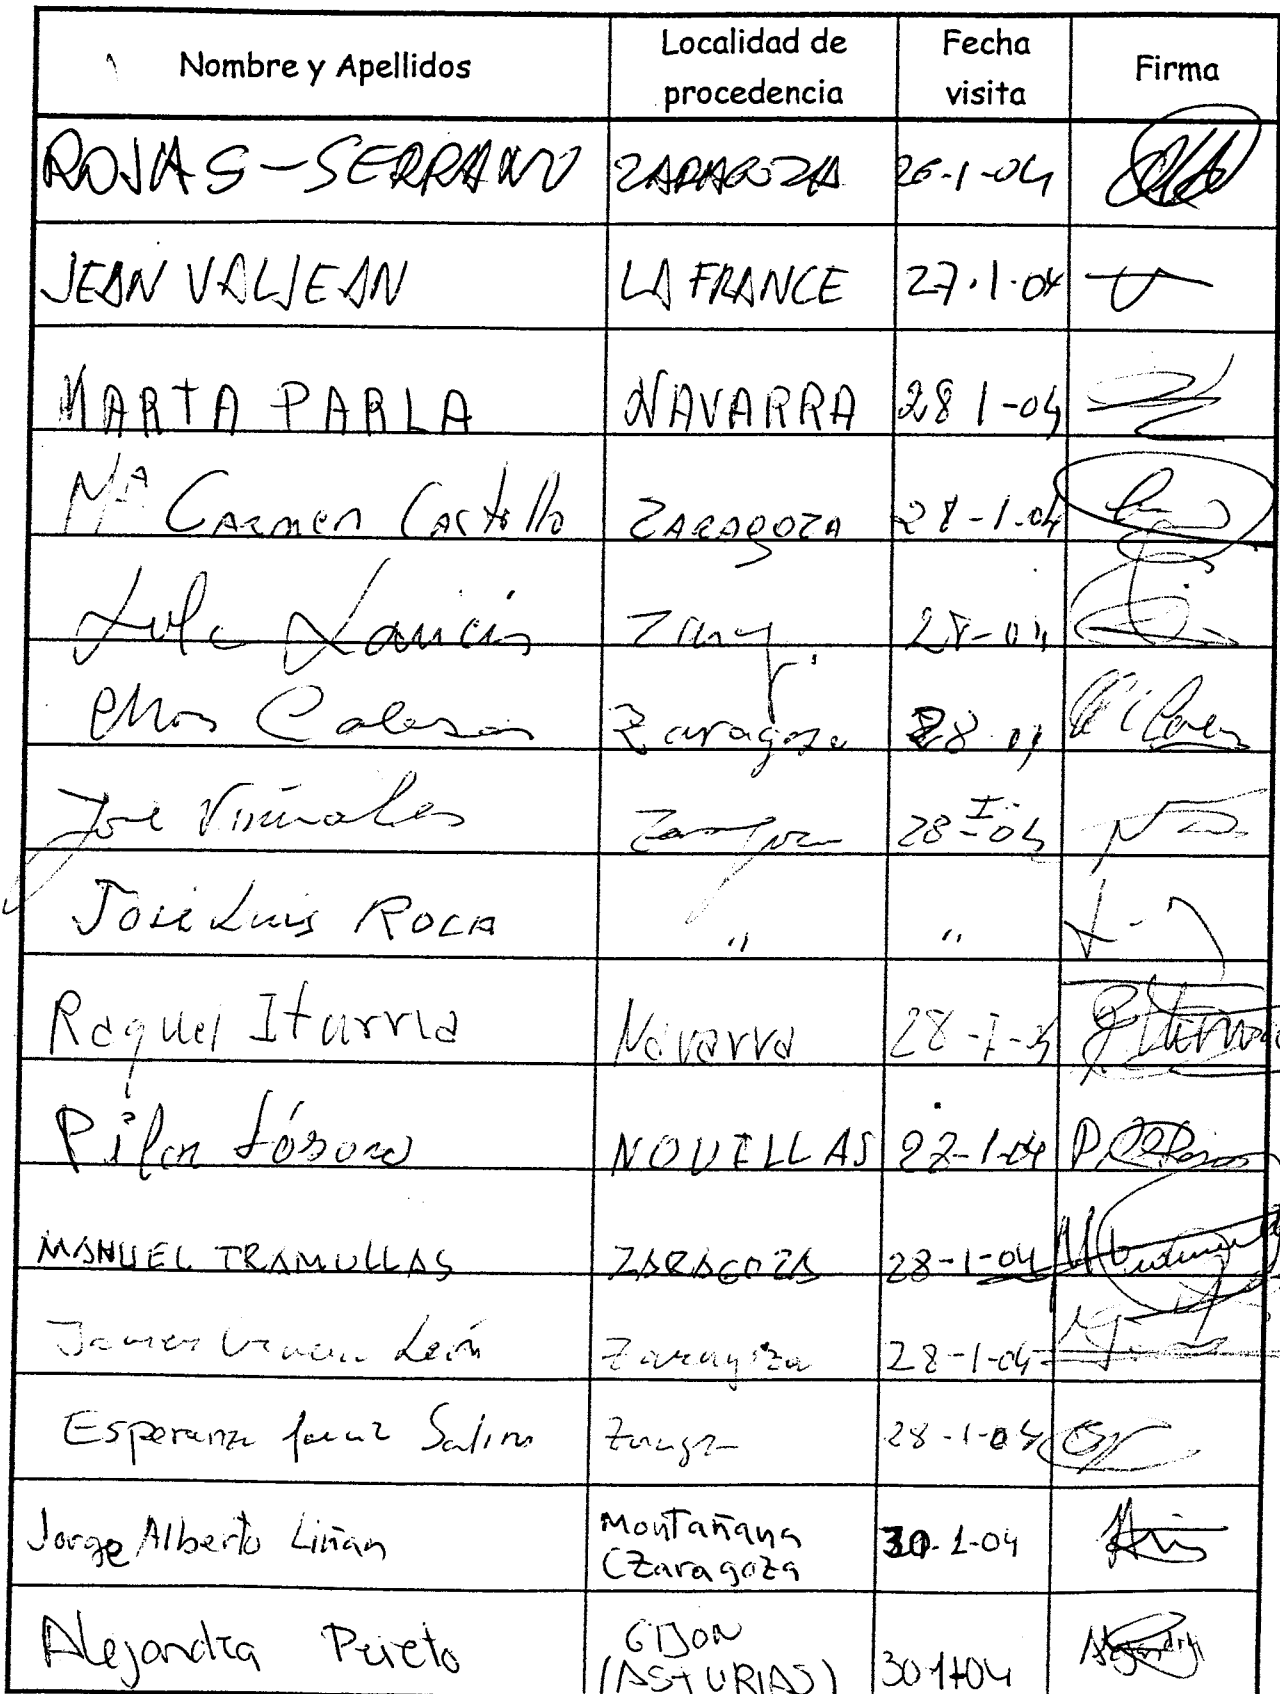 Nombre y Apellidos Localidad de procedencia Fecha visita Firma
ROJAS-SERRANO ZARAGOZA 26-1-04
JEAN VALJEAN LA FRANCE 27.1.04
MARTA PARLA NAVARRA 28 1-04
Mª Carmen Castillo ZARAGOZA 28-1-04
Lola Zarag. 28-04
Zaragoza 28
José Viñuales Zaragoza 28-I-04
José Luis ROCA " "
Raquel Iturria Navarra 28-1-04
Pilar NOVILLAS 27-1-04
MANUEL TRAMULLAS ZARAGOZA 28-1-04
León Zaragoza 28-1-04
Esperanza 28-1-04
Jorge Alberto Liñan Montañana (Zaragoza 30-1-04
Alejandra Prieto GIJON (ASTURIAS) 30-1-04